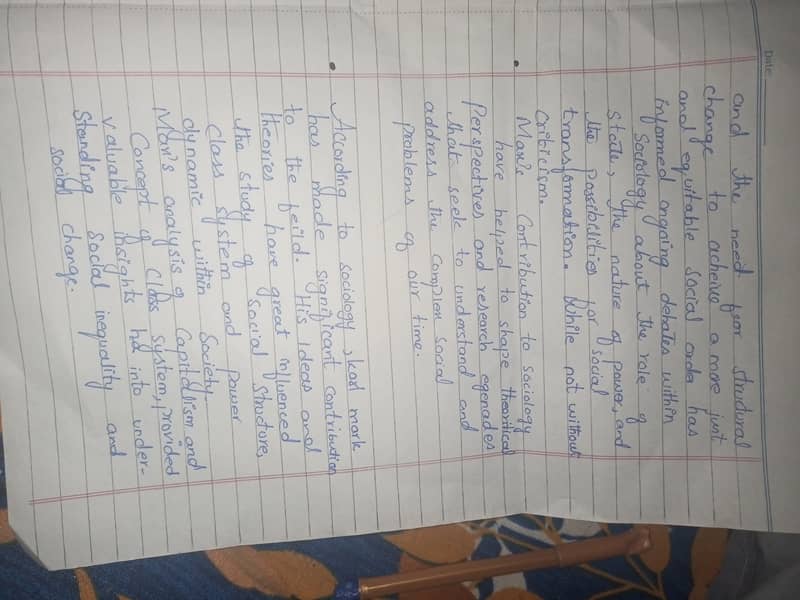 Date
and the need for structural
change to acheive a more just
and equitable social order has
informed ongoing debates within
Sociology about the role of
state, the nature of power, and
the possibilities for social
transformation. While not without
criticism.
Marx's Contribution to sociology
have helped to shape theoritical
Perspectives and research egenades
that seek to understand and
address the complex social
problems of our time.
According to sociology, karl mark
has made significant contribution
to the feild. His ideas and
theories have great influenced
the study of social structure,
class system and power
dynamic within Society.
Marx's analysis of Capitalism and
Concept of class system, provided
valuable insights into under-
standing social inequality and
social change.